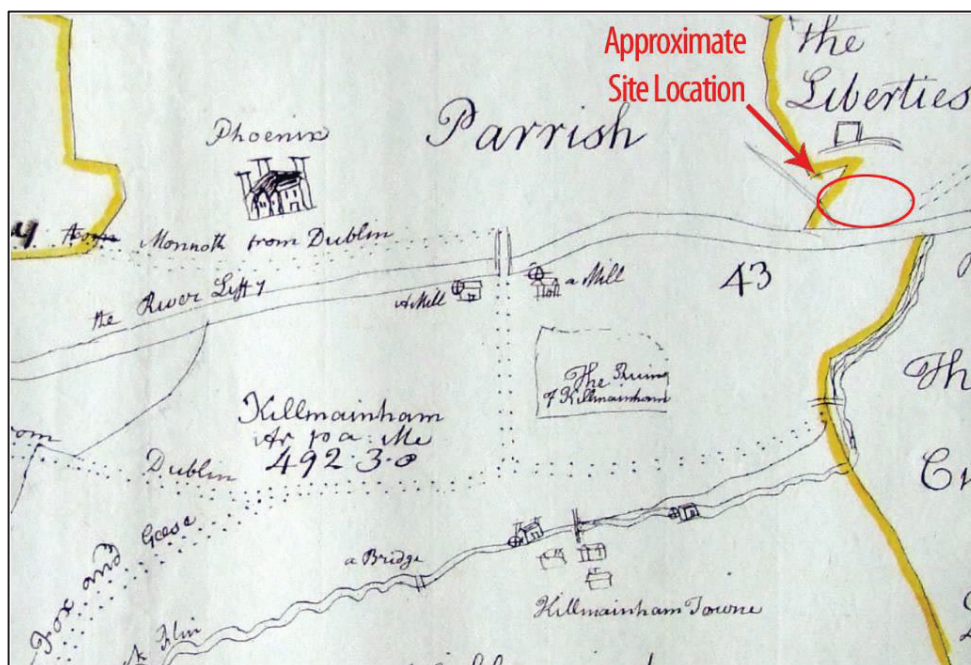 Approximate
Site Location
the
Liberties
Phoenix
Parrish
Monnoth from Dublin
the River Liffy
A Mill
a Mill
43
The Ruins
of Killmainham
Killmainham
Ar
492·3·0
Dublin
Th
Fox and Geese
a Bridge
Killmainham Towne